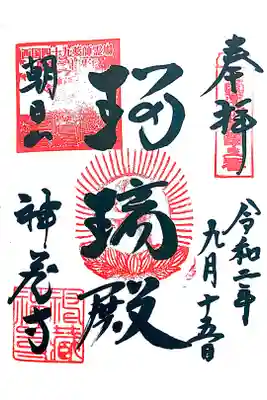 奉拝
令和二年
九月十五日
瑠璃殿
朝日山
神蔵寺